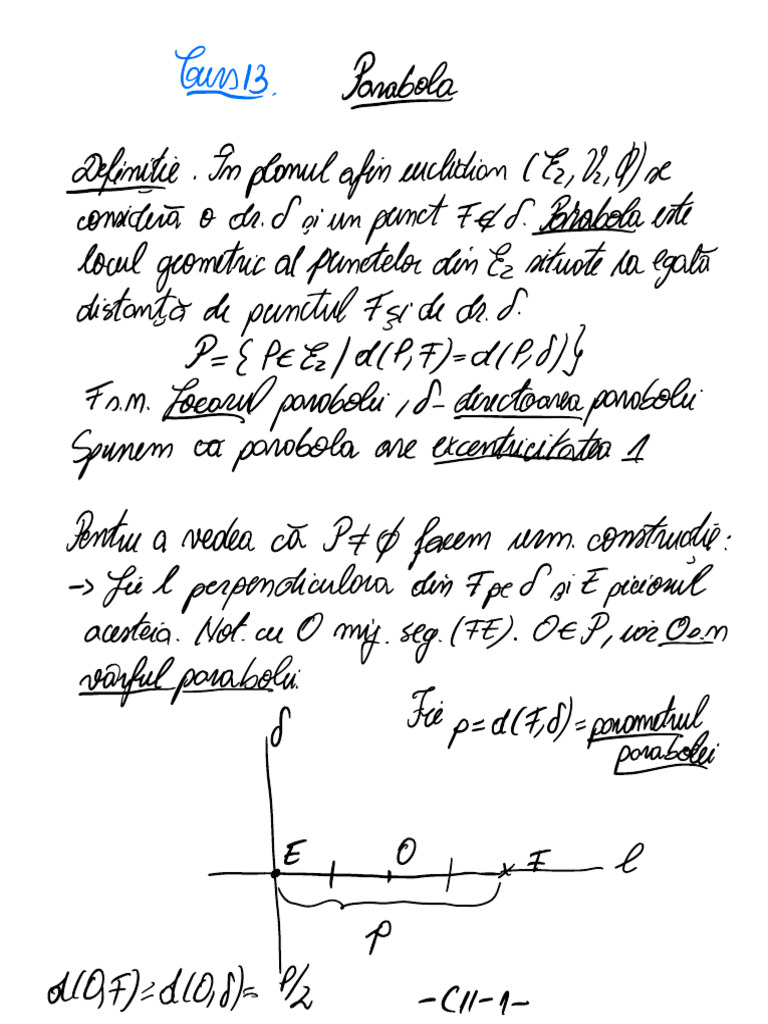 Curs 13. Parabola
Definiție. În planul afin euclidian (E₂, V₂, Φ) se
consideră o dr. δ și un punct F∉δ. Parabola este
locul geometric al punctelor din E₂ situate la egală
distanță de punctul F și de dr. δ.
P = { P∈E₂ / d(P,F) = d(P,δ)}
F s.m. focarul parabolei, δ- directoarea parabolei
Spunem că parabola are excentricitatea 1
Pentru a vedea că P≠∅ facem urm. construcție:
→ Fie l perpendiculara din F pe δ și E piciorul
acesteia. Not. cu O mij. seg. (FE). O∈P, iar O s.n
vârful parabolei.
Fie p = d(F,δ) = parametrul
parabolei
δ
E O F l
p
d(O,F) = d(O,δ) = P/2
-C11-1-